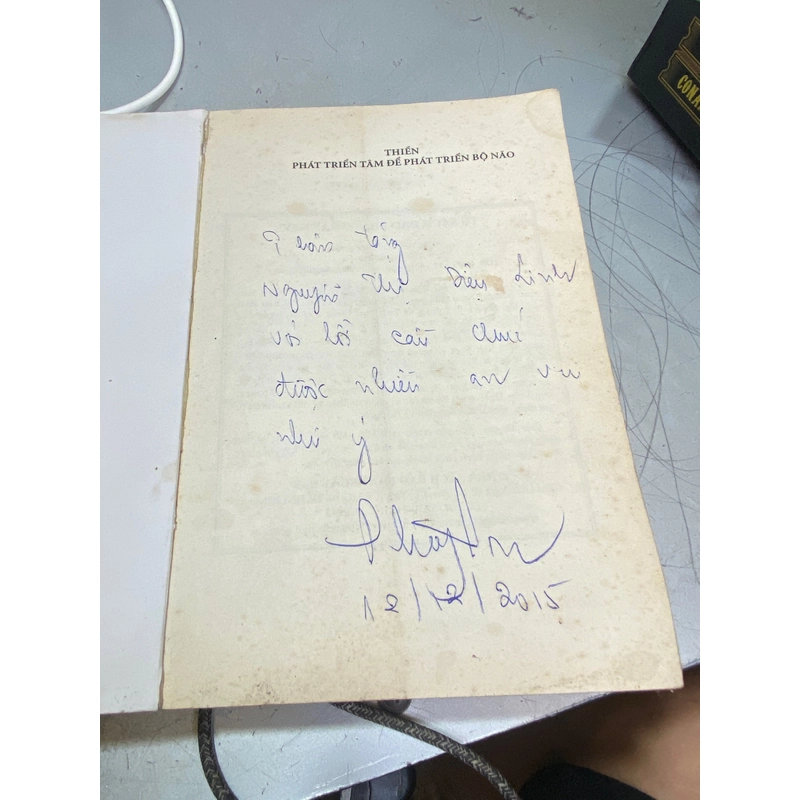 THIỀN
PHÁT TRIỂN TÂM ĐỂ PHÁT TRIỂN BỘ NÃO
Thân tặng
Nguyễn Thị Diệu Linh
với lời cầu chúc
được nhiều an vui
như ý
12/12/2015
CONA